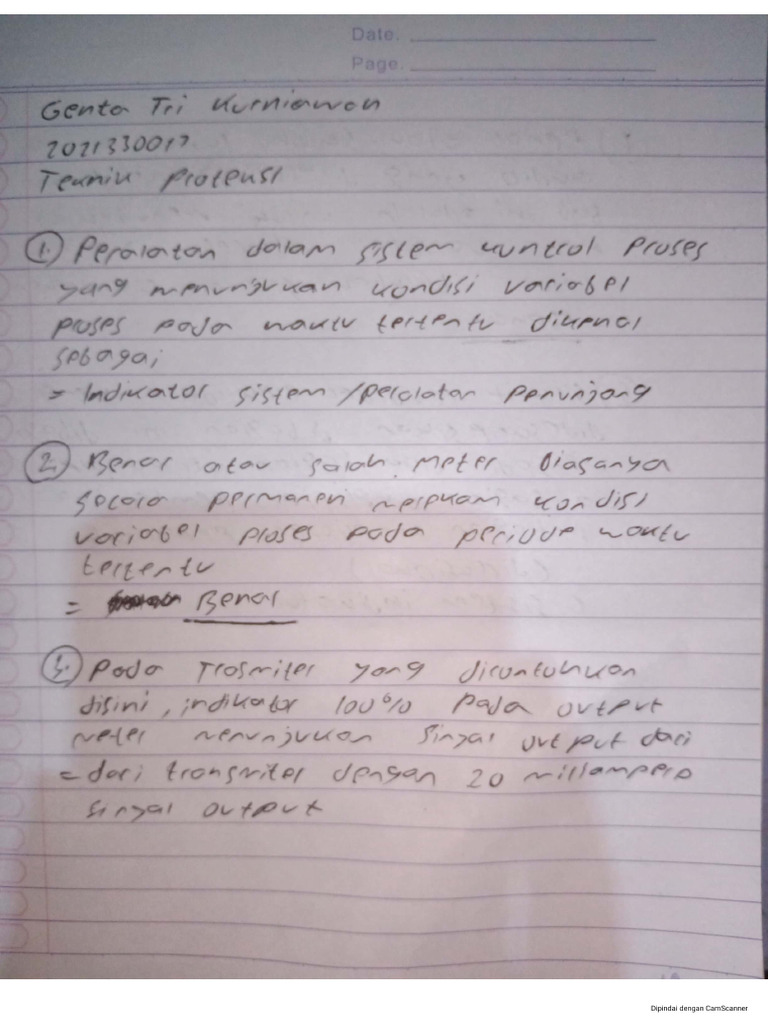 Date.
Page.
Genta Tri Kurniawan
2021330017
Teknik Proteksi
1. Peralatan dalam sistem kuntrol Proses
yang menunjukan kondisi variabel
proses pada waktu tertentu dikenal
sebagai
= Indikator sistem / peralatan penunjang
2. Benar atau salah. Meter biasanya
secara permanen merekam kondisi
variabel proses pada periode waktu
tertentu
= Benar
3. Pada Trosmiter yang dicontohkan
disini, indikator 100% pada output
Meter menunjukan sinyal output dari
= dari transmiter dengan 20 millampere
sinyal output
Dipindai dengan CamScanner